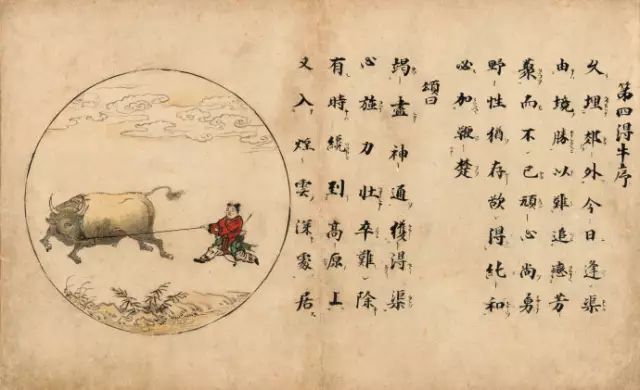 第四得牛序
久埋郊外今日逢渠
由境勝以難追戀芳
藂而不已頑心尚勇
野性猶存欲得純和
必加鞭楚
頌曰
竭盡神通獲得渠
心強力壯卒難除
有時纔到高原上
又入煙雲深處居